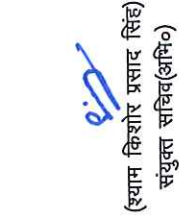 (श्याम किशोर प्रसाद सिंह)
संयुक्त सचिव(अभि०)